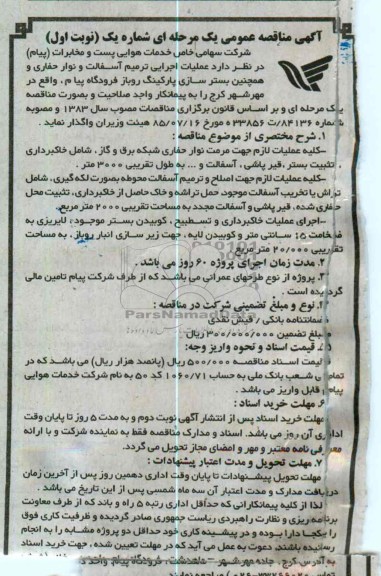 آگهی مناقصه عمومی یک مرحله ای شماره یک (نوبت اول)
شرکت سهامی خاص خدمات هوایی پست و مخابرات (پیام)
در نظر دارد عملیات اجرایی ترمیم آسفالت و نوار حفاری و
همچنین بستر سازی پارکینگ روباز فرودگاه پیام، واقع در
مهرشهر کرج را به پیمانکار واجد صلاحیت و بصورت مناقصه
یک مرحله ای و بر اساس قانون برگزاری مناقصات مصوب سال ۱۳۸۳ و مصوبه
شماره ۸۴۱۳۶/ت ۳۳۸۵۶ه مورخ ۸۵/۰۷/۱۶ هیئت وزیران واگذار نماید.
۱. شرح مختصری از موضوع مناقصه :
-کلیه عملیات لازم جهت مرمت نوار حفاری شبکه برق و گاز، شامل خاکبرداری
، تثبیت بستر، قیر پاشی، آسفالت و ... به طول تقریبی ۳۰۰۰ متر.
-کلیه عملیات لازم جهت اصلاح و ترمیم آسفالت محوطه بصورت لکه گیری، شامل
تراش یا تخریب آسفالت موجود، حمل تراشه و خاک حاصل از خاکبرداری، تثبیت محل
حفاری شده، قیر پاشی و آسفالت مجدد به مساحت تقریبی ۲۰۰۰ متر مربع.
-اجرای عملیات خاکبرداری و تسطیح، کوبیدن بستر موجود، لایریزی به
ضخامت ۱۵ سانتی متر و کوبیدن لایه، جهت زیر سازی انبار روباز، به مساحت
تقریبی ۲۰/۰۰۰ متر مربع
۲. مدت زمان اجرای پروژه ۶۰ روز می باشد.
۳. پروژه از نوع طرحهای عمرانی می باشد که از طرف شرکت پیام تامین مالی
گردیده است.
۴. نوع و مبلغ تضمینی شرکت در مناقصه :
ضمانتنامه بانکی / فیش نقدی
مبلغ تضمین ۳۰۰/۰۰۰/۰۰۰ ریال
۵. قیمت اسناد و نحوه واریز وجه:
قیمت اسناد مناقصه ۵۰۰/۰۰۰ ریال (پانصد هزار ریال) می باشد که در
تمامی شعب بانک ملی به حساب ۱۰۶۰/۷۱ کد ۵۰ به نام شرکت خدمات هوایی
پیام قابل واریز می باشد.
۶. مهلت خرید اسناد :
مهلت خرید اسناد پس از انتشار آگهی نوبت دوم و به مدت ۵ روز تا پایان وقت
اداری آن روز می باشد. اسناد و مدارک مناقصه فقط به نماینده شرکت و با ارائه
معرفی نامه معتبر و مهر و امضای مجاز تحویل می گردد.
۷. مهلت تحویل و مدت اعتبار پیشنهادات :
مهلت تحویل پیشنهادات تا پایان وقت اداری دهمین روز پس از آخرین زمان
دریافت مدارک و مدت اعتبار آن سه ماه شمسی پس از این تاریخ می باشد.
لذا از کلیه پیمانکارانی که حداقل اداری رتبه ۵ راه و باند که از طرف معاونت
برنامه ریزی و نظارت راهبردی ریاست جمهوری صادر گردیده و ظرفیت کاری فوق
را یکجا دارا بوده و در پیشینه کاری خود حداقل دو پروژه مشابه را به انجام
رسانیده باشند، دعوت به عمل می آید که در مهلت تعیین شده، جهت خرید اسناد
به آدرس کرج، جاده مهرشهر - ماهدشت، فرودگاه پیام، واحد
مراجعه نمایند